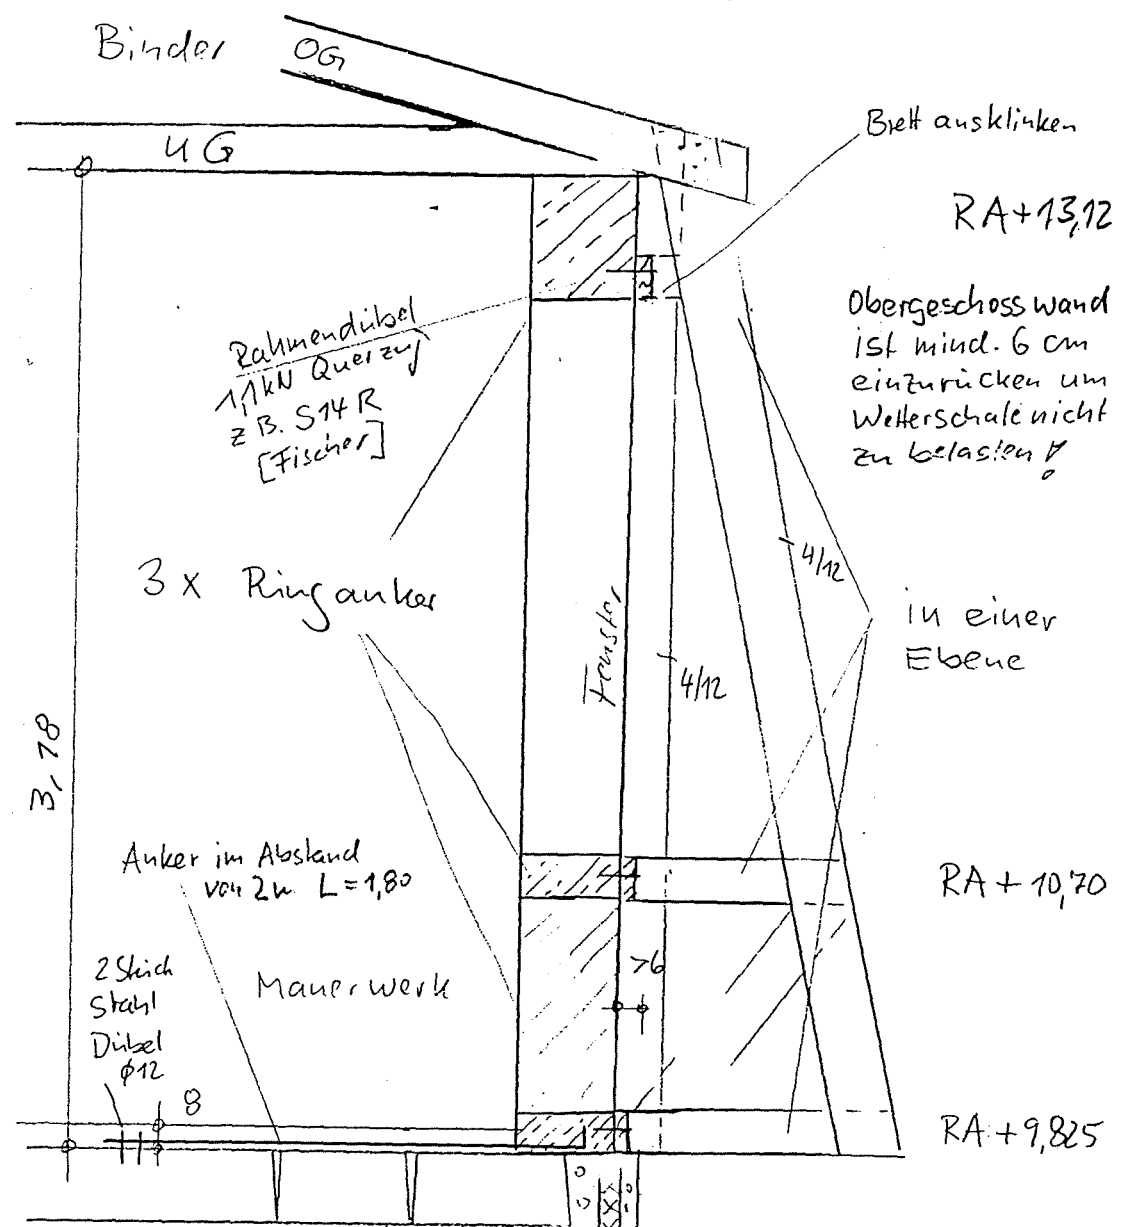 Binder
OG
UG
Brett ausklinken
RA+13,12
Obergeschosswand
ist mind. 6 cm
einzurücken um
Wetterschale nicht
zu belasten!
Rahmendübel
1,1kN Querzug
z B. S14 R
[Fischer]
4/12
3 x Ringanker
in einer
Ebene
Fenster
4/12
3,18
Anker im Abstand
von 2m L=1,80
RA + 10,70
>6
2 Stück
Stahl
Dübel
ϕ12
Mauerwerk
8
RA +9,825